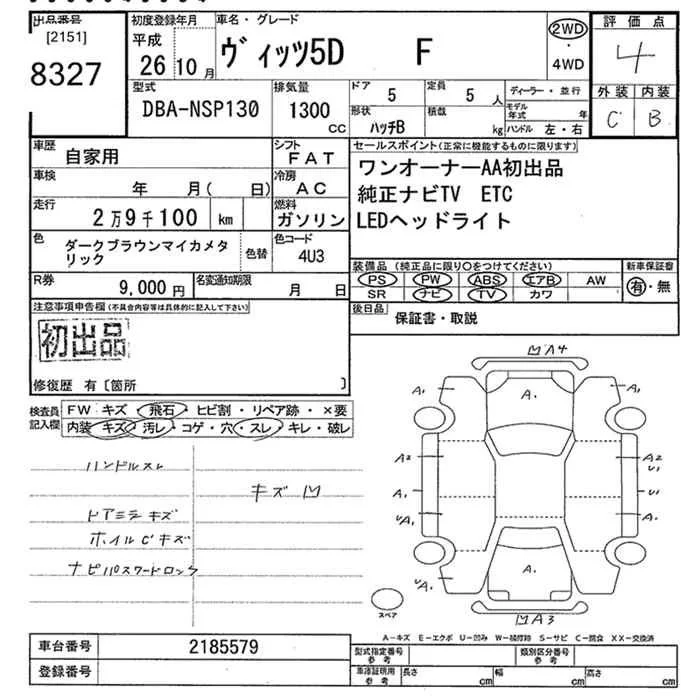 出品番号
[2151]
8327
初度登録年月
平成
26 10 月
車名・グレード
ヴィッツ5D F
2WD
・
4WD
評価点
4
外装 内装
C B
型式
DBA-NSP130
排気量
1300
CC
ドア
5
定員
5 人
形状
ハッチB
積載
kg
ディーラー・並行
モデル年式 年
ハンドル 左・右
車歴
自家用
シフト
FAT
車検
年 月( 日)
冷房
AC
走行
2万9千100 km
燃料
ガソリン
色
ダークブラウンマイカメタ
リック
色替
色コード
4U3
R券
9,000 円
名変通知期限
月 日
セールスポイント(正常に機能するものに限ります)
ワンオーナーAA初出品
純正ナビTV ETC
LEDヘッドライト
装備品(純正品に限り○をつけてください)
PS PW ABS エアB AW
SR ナビ TV カワ
新車保証書
有・無
後日品
保証書・取説
注意事項申告欄(不具合内容等は具体的に記入して下さい)
初出品
修復歴 有〔箇所 〕
検査員
記入欄
FW キズ・飛石・ヒビ割・リペア跡・×要
内装 キズ・汚レ・コゲ・穴・スレ・キレ・破レ
ハンドルスレ
キズ凹
ドアミラキズ
ホイルCキズ
ナビパスワードロック
凹A4
A1
A1
A1
A2
A2
U1
A1
U1
UA1
A1
UA1
A1
A1
凹A3
スペア
A-キズ E-エクボ U-凹み W-補修跡 S-サビ C-腐食 XX-交換済
車台番号
2185579
登録番号
型式指定番号
参考
類別区分番号
参考
車庫証明用
参考
長さ cm
幅 cm
高さ cm